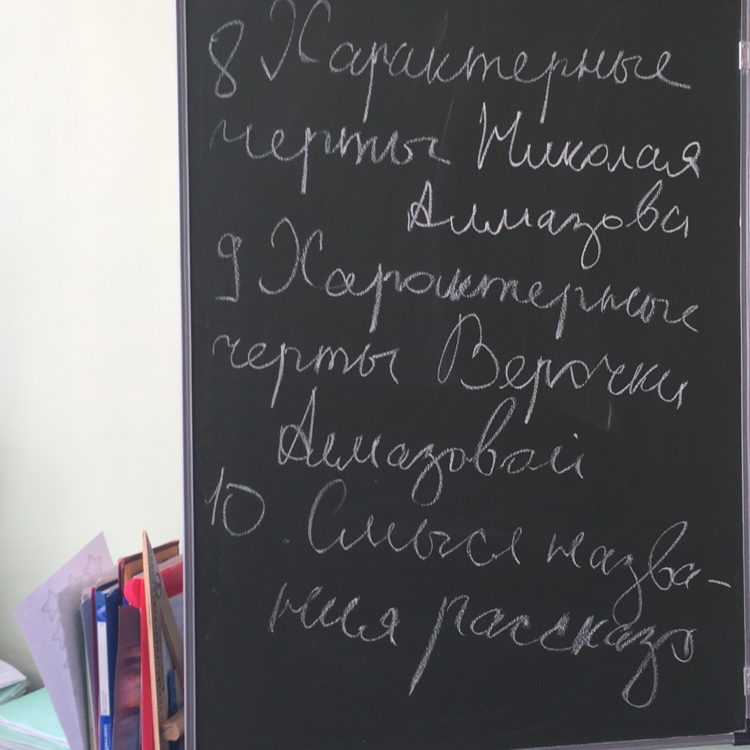 8 Характерные
черты Николая
Алмазова
9 Характерные
черты Верочки
Алмазовой
10. Смысл назва-
ния рассказа